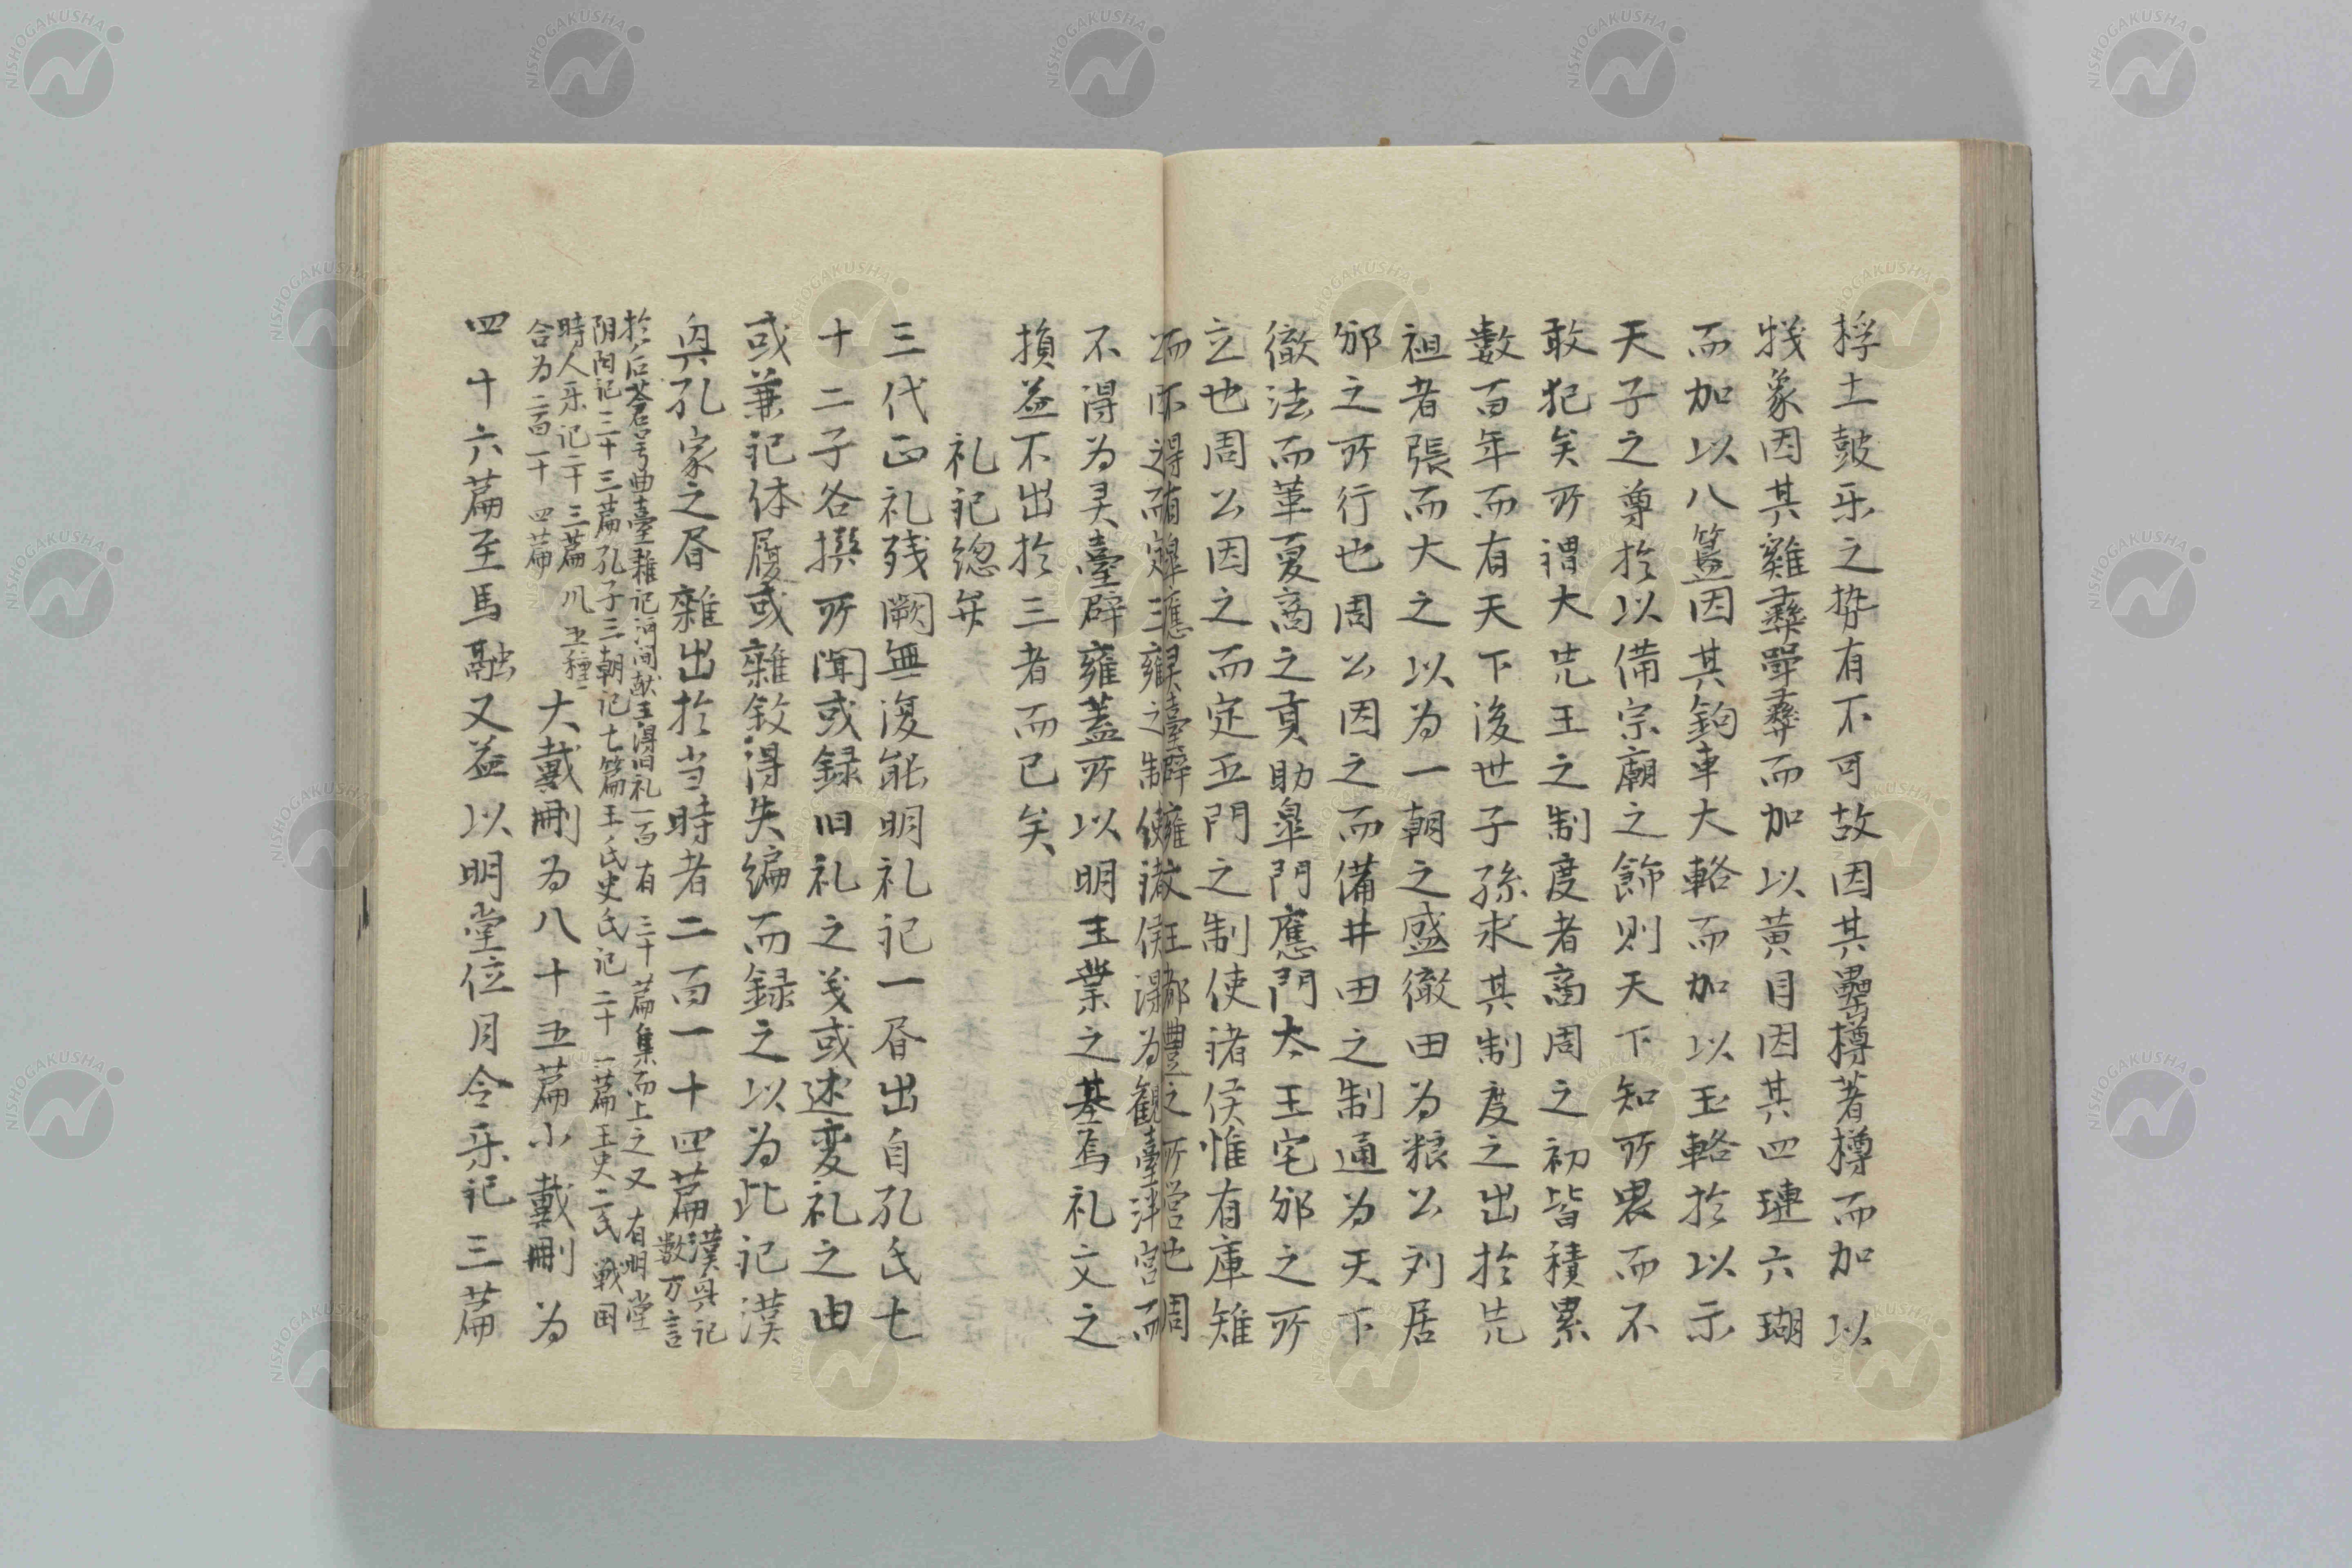 桴土鼓乐之势有不可故因其罍樽著樽而加以
牺象因其雞彝斝彝而加以黄目因其四璉六瑚
而加以八簋因其鉤車大輅而加以玉輅於以示
天子之尊於以備宗廟之飾則天下知所畏而不
敢犯矣所谓大先王之制度者商周之初皆積累
數百年而有天下後世子孫求其制度之出於先
祖者張而大之以为一朝之盛徹田为粮公刘居
邠之所行也周公因之而備井田之制通为天下
徹法而革夏商之貢助皐門應門太王宅邠之所
立也周公因之而定五門之制使诸侯惟有庫雉
而不得
不得为灵臺辟雍蓋所以明王業之基焉礼文之
損益不出於三者而已矣
礼記總弁
三代正礼残闕無復能明礼記一昏出自孔氏七
十二子各撰所闻或録旧礼之义或述变礼之由
或兼記体履或雜敘得失编而録之以为此記漢
興孔家之昏雜出於当時者二百一十四篇漢興記
數万言
於后苍号曲臺雜記河间献王得旧礼一百有三十篇集而上之又有明堂
阴阳记三十三篇孔子三朝记七篇王氏史氏记二十一篇王史二氏戦国
時人乐记二十三篇凡五種
合为二百一十四篇
大戴刪为八十五篇小戴刪为
四十六篇至馬融又益以明堂位月令乐記三篇